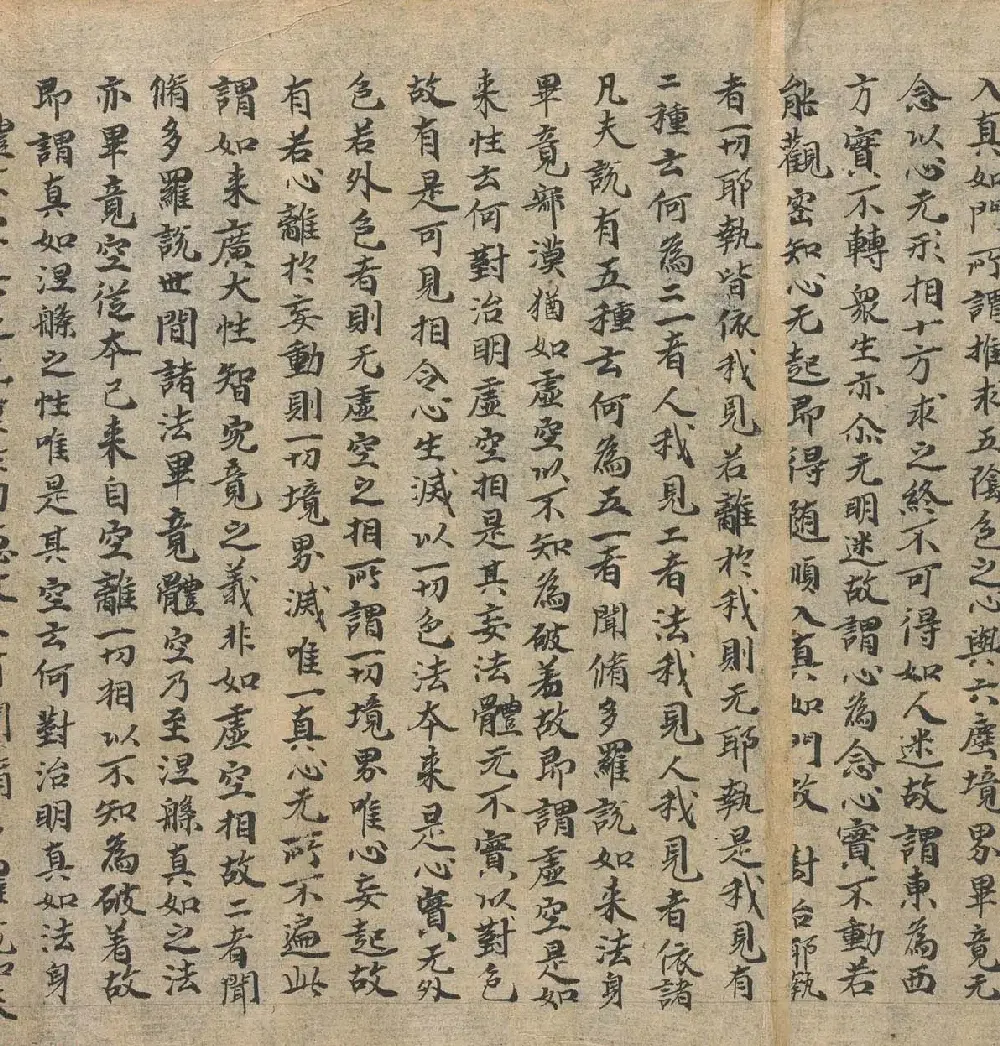 入真如門所謂推求五陰色之心與六塵境界畢竟无
念以心无形相十方求之終不可得如人迷故謂東為西
方實不轉衆生亦尒无明迷故謂心為念心實不動若
能觀察知心无起即得随順入真如門故 對治耶執
者一切耶執皆依我見若離於我則无耶執是我見有
二種云何為二一者人我見二者法我見人我見者依諸
凡夫說有五種云何為五一者聞脩多羅說如来法身
畢竟寂漠猶如虛空以不知為破著故即謂虛空是如
来性云何對治明虛空相是其妄法體无不實以對色
故有是可見相令心生滅以一切色法本来是心實无外
色若外色者則无虛空之相所謂一切境界唯心妄起故
有若心離於妄動則一切境界滅唯一真心无所不遍此
謂如来廣大性智究竟之義非如虛空相故二者聞
脩多羅說世間諸法畢竟體空乃至涅槃真如之法
亦畢竟空從本已来自空離一切相以不知為破著故
即謂真如涅槃之性唯是其空云何對治明真如法身